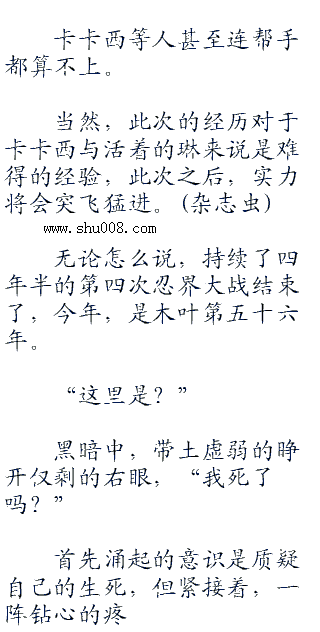 卡卡西等人甚至连帮手
都算不上。
当然，此次的经历对于
卡卡西与活着的琳来说是难
得的经验，此次之后，实力
将会突飞猛进。(杂志虫)
www.shu008.com
无论怎么说，持续了四
年半的第四次忍界大战结束
了，今年，是木叶第五十六
年。
“这里是？”
黑暗中，带土虚弱的睁
开仅剩的右眼，“我死了
吗？”
首先涌起的意识是质疑
自己的生死，但紧接着，一
阵钻心的疼